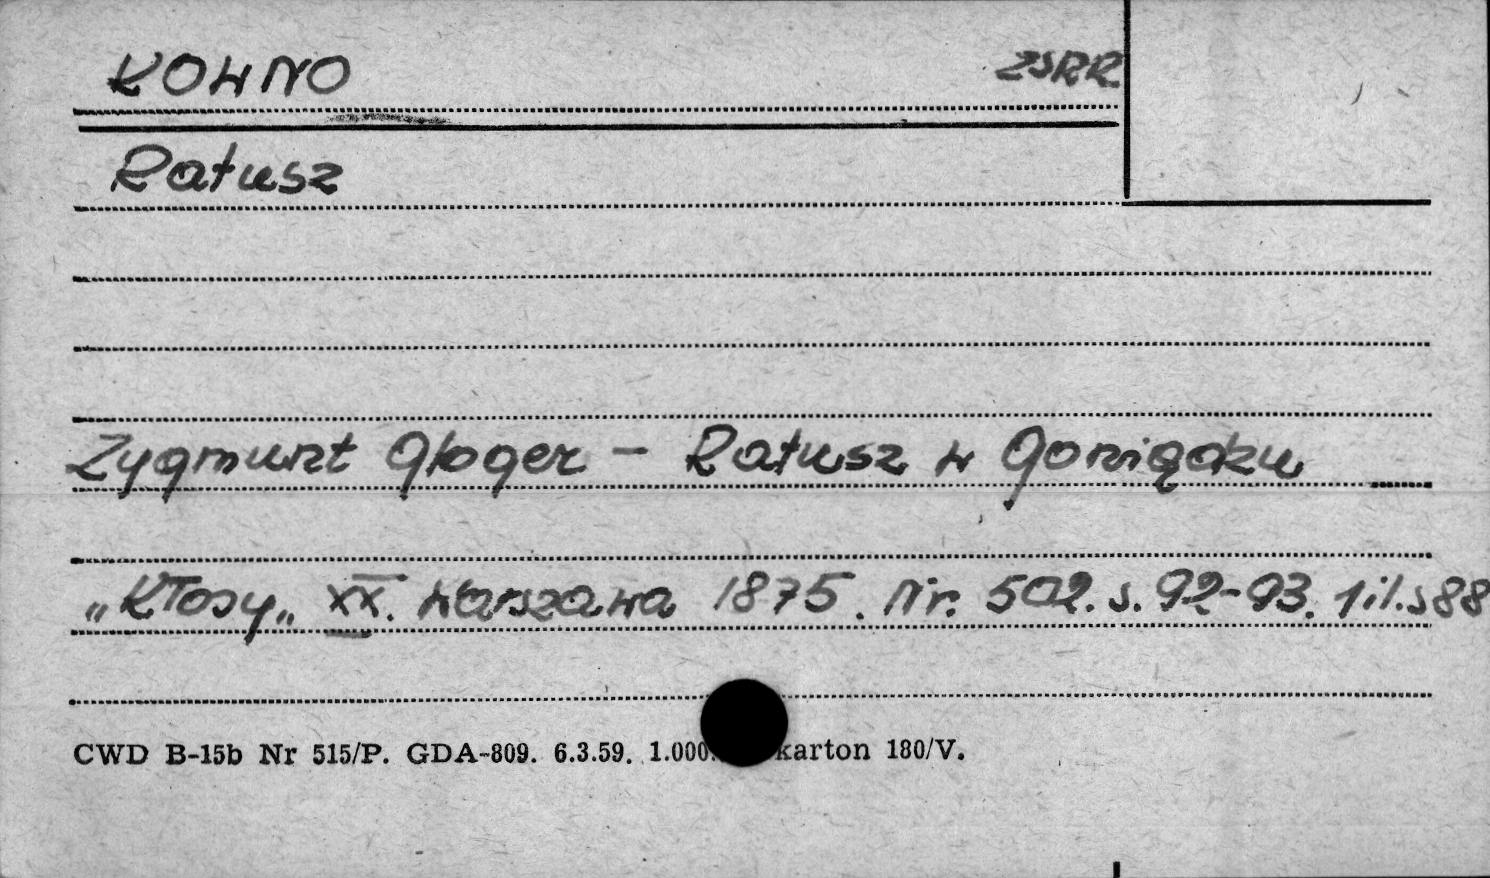 KOWNO ZSRR
Ratusz
Zygmunt Gloger – Ratusz w Goniądzu
„Kłosy„ XX. Warszawa 1875. Nr. 502. s. 92-93. 1 il. s 88
CWD B-15b Nr 515/P. GDA-809. 6.3.59. 1.000. karton 180/V.